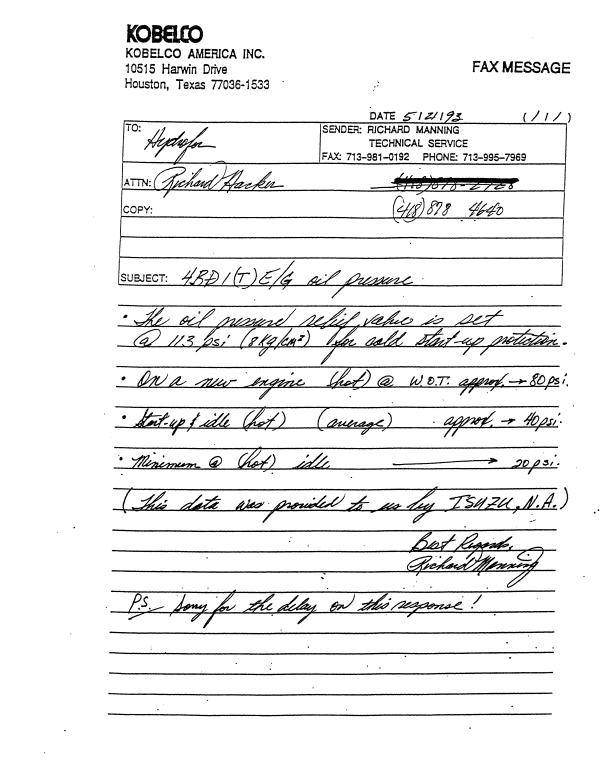 KOBELCO
KOBELCO AMERICA INC.
10515 Harwin Drive
Houston, Texas 77036-1533
FAX MESSAGE
DATE 5/21/93 (1/1)
TO: Hydrofor
SENDER: RICHARD MANNING
TECHNICAL SERVICE
FAX: 713-981-0192 PHONE: 713-995-7969
ATTN: Richard Harker
COPY: (418) 878 4640
SUBJECT: 4BD1(T) E/G oil pressure
• The oil pressure relief valve is set
@ 11.3 psi (8 Kg/cm²) for cold start-up protection.
• On a new engine (hot) @ W.O.T. approx. → 80 psi.
• Start-up & idle (hot) (average) approx. → 40 psi.
• Minimum @ (hot) idle → 20 psi.
(This data was provided to us by ISUZU, N.A.)
Best Regards,
Richard Manning
P.S. Sorry for the delay on this response!